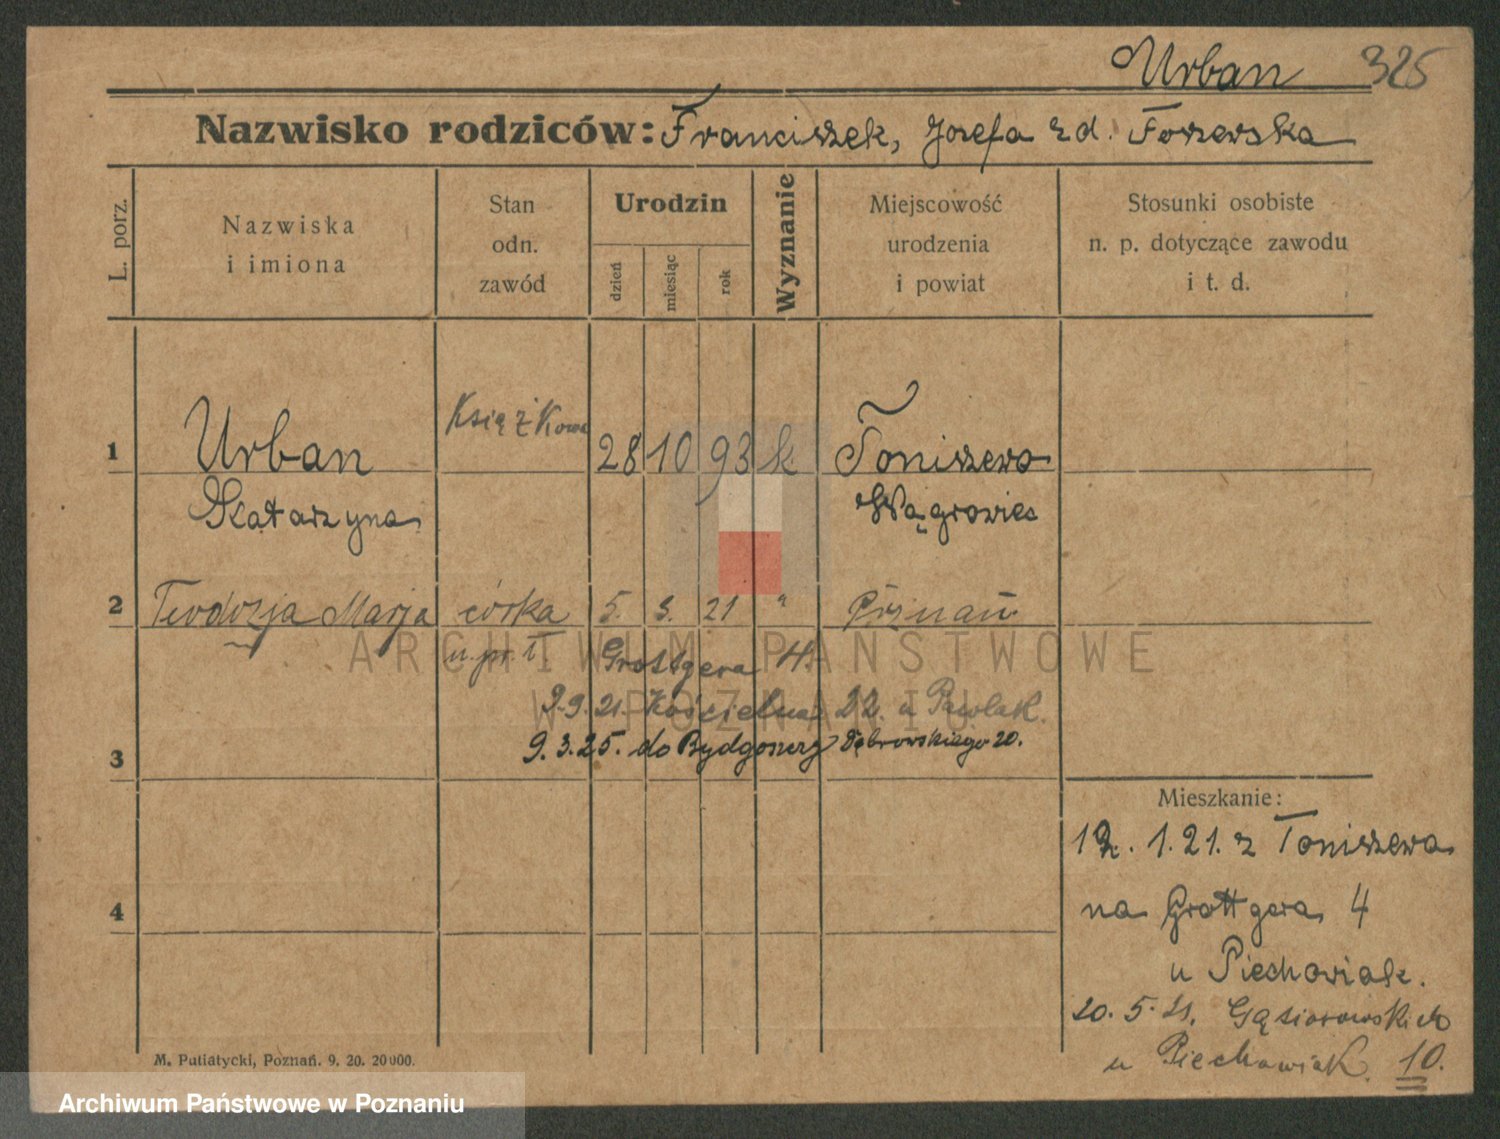 Urban 325
Nazwisko rodziców: Franciszek, Józefa zd. Toszewska
L. porz.
Nazwiska
i imiona
Stan
odn.
zawód
Urodzin
dzień
miesiąc
rok
Wyznanie
Miejscowość
urodzenia
i powiat
Stosunki osobiste
n. p. dotyczące zawodu
i t. d.
1 Urban Książkowa 28 10 93 k Toniszewo
Katarzyna Wągrowiec
2 Teodozja Marja córka 5. 3. 21 " Poznań
Grottgera 4.
9.9.21. Kościelna 22. u Pawlak.
3 9.3.25. do Bydgoszczy Dąbrowskiego 20.
Mieszkanie:
1.21. z Toniszewa
4 na Grottgera 4
u Piechowiak.
20.5.21. Gąsiorowskich
u Piechowiak. 10.
M. Putiatycki, Poznań. 9. 20. 20000.
ARCHIWUM PAŃSTWOWE
W POZNANIU
Archiwum Państwowe w Poznaniu